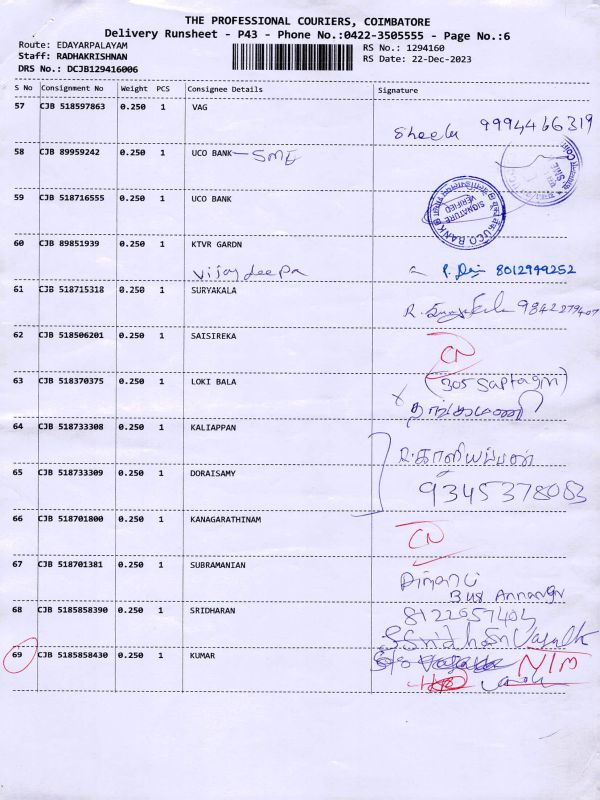 THE PROFESSIONAL COURIERS, COIMBATORE
Delivery Runsheet - P43 - Phone No.:0422-3505555 - Page No.:6
Route: EDAYARPALAYAM
RS No.: 1294160
Staff: RADHAKRISHNAN
RS Date: 22-Dec-2023
DRS No.: DCJB129416006
S No Consignment No Weight PCS Consignee Details Signature
57 CJB 518597863 0.250 1 VAG
Sheela 9994466319
58 CJB 89959242 0.250 1 UCO BANK - SME
59 CJB 518716555 0.250 1 UCO BANK
SIGNATURE VERIFIED
UCO BANK
60 CJB 89851939 0.250 1 KTVR GARDN
Vijay deepa 8012949252
61 CJB 518715318 0.250 1 SURYAKALA
R. 9842279407
62 CJB 518506201 0.250 1 SAISIREKA
CN
63 CJB 518370375 0.250 1 LOKI BALA (305 Saptagiri)
தங்கமணி
64 CJB 518733308 0.250 1 KALIAPPAN
R. காளியப்பன்
65 CJB 518733309 0.250 1 DORAISAMY
9345378083
66 CJB 518701800 0.250 1 KANAGARATHINAM
CN
67 CJB 518701381 0.250 1 SUBRAMANIAN
68 CJB 5185858390 0.250 1 SRIDHARAN 8122657404
69 CJB 5185858430 0.250 1 KUMAR